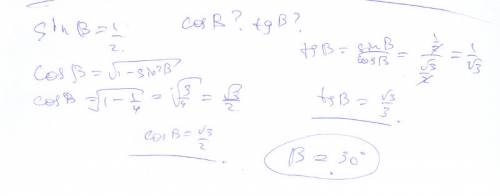 sin B = 1/2. cos B? tg B?
cos B = √(1 - sin²B)
cos B = √(1 - 1/4) = √(3/4) = √3/2
cos B = √3/2.
tg B = sin B / cos B = (1/2) / (√3/2) = 1/√3
tg B = √3/3.
B = 30°